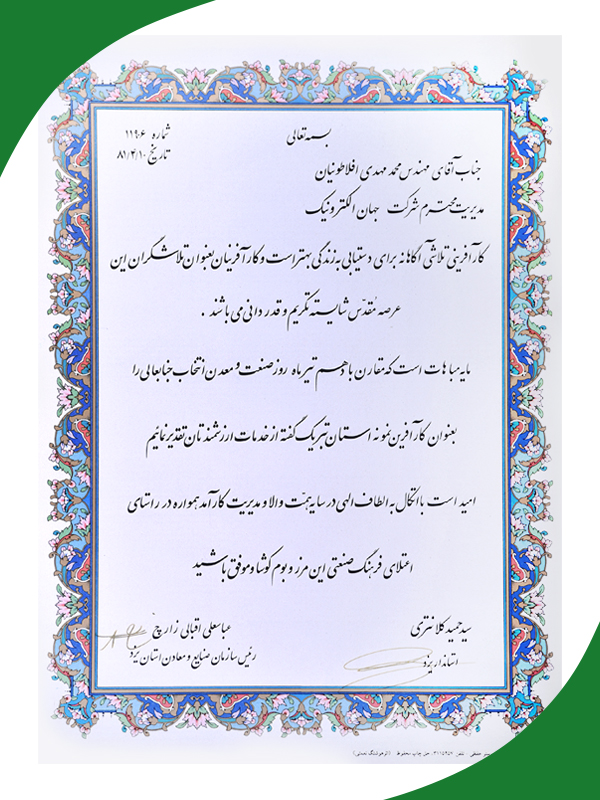 بسمه تعالی
شماره ۱۱۹۰۶
تاریخ ۸۱/۴/۱۰
جناب آقای مهندس محمد مهدی افلاطونیان
مدیریت محترم شرکت جهان الکترونیک
کارآفرینی تلاشی آگاهانه برای دستیابی به زندگی بهتر است و کارآفرینان بعنوان تلاشگران این
عرصه مقدّس شایسته تکریم و قدردانی می باشند .
مایه مباهات است که مقارن با دهم تیرماه روز صنعت و معدن انتخاب جنابعالی را
بعنوان کارآفرین نمونه استان تبریک گفته از خدمات ارزشمندتان تقدیر نمائیم
امید است با اتکال به الطاف الهی در سایه همّت والا و مدیریت کارآمد همواره در راستای
اعتلای فرهنگ صنعتی این مرز و بوم کوشا و موفق باشید
سید حمید کلانتری
استاندار یزد
عباسعلی اقبالی زارچ
رئیس سازمان صنایع و معادن استان یزد
حق چاپ محفوظ